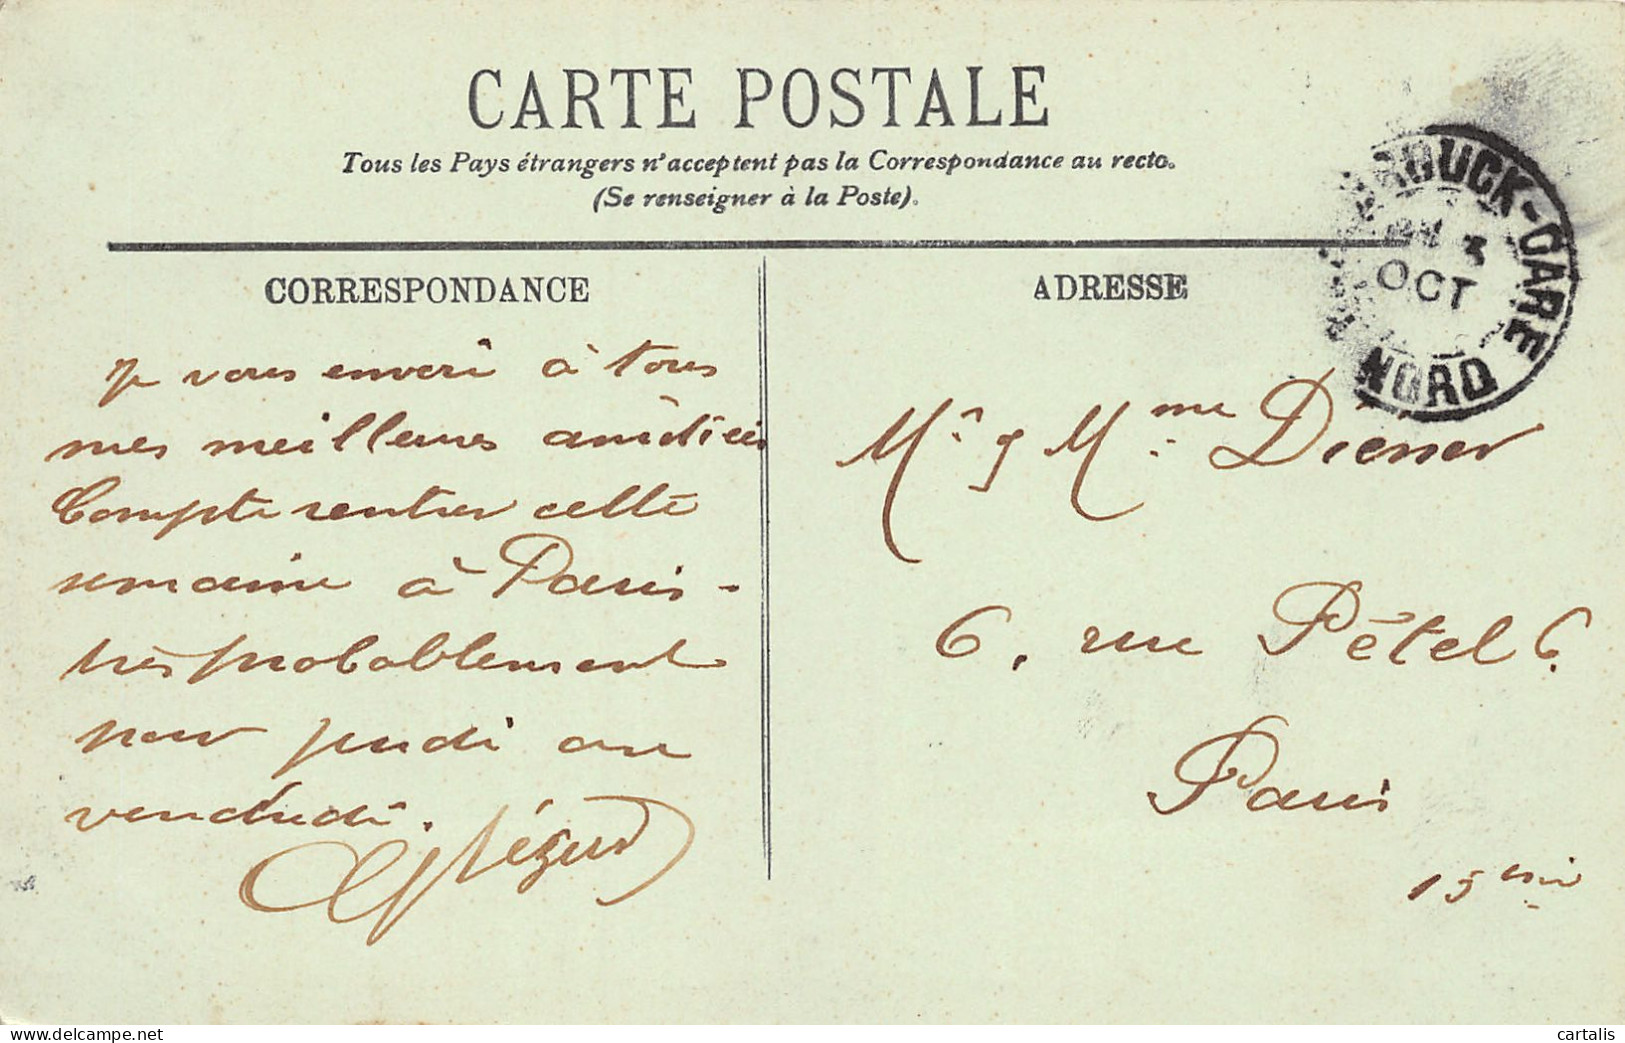 CARTE POSTALE
Tous les Pays étrangers n'acceptent pas la Correspondance au recto.
(Se renseigner à la Poste).
CORRESPONDANCE
Je vous envoi à tous
mes meilleures amitiés
Compte rentrer cette
semaine à Paris -
très probablement
pour jeudi ou
vendredi.
ADRESSE
BROUCK-GARE
3
OCT
NORD
Mr. & Mme. Diener
6, rue Pétel 6.
Paris
15eme
cartalis
delcampe.net